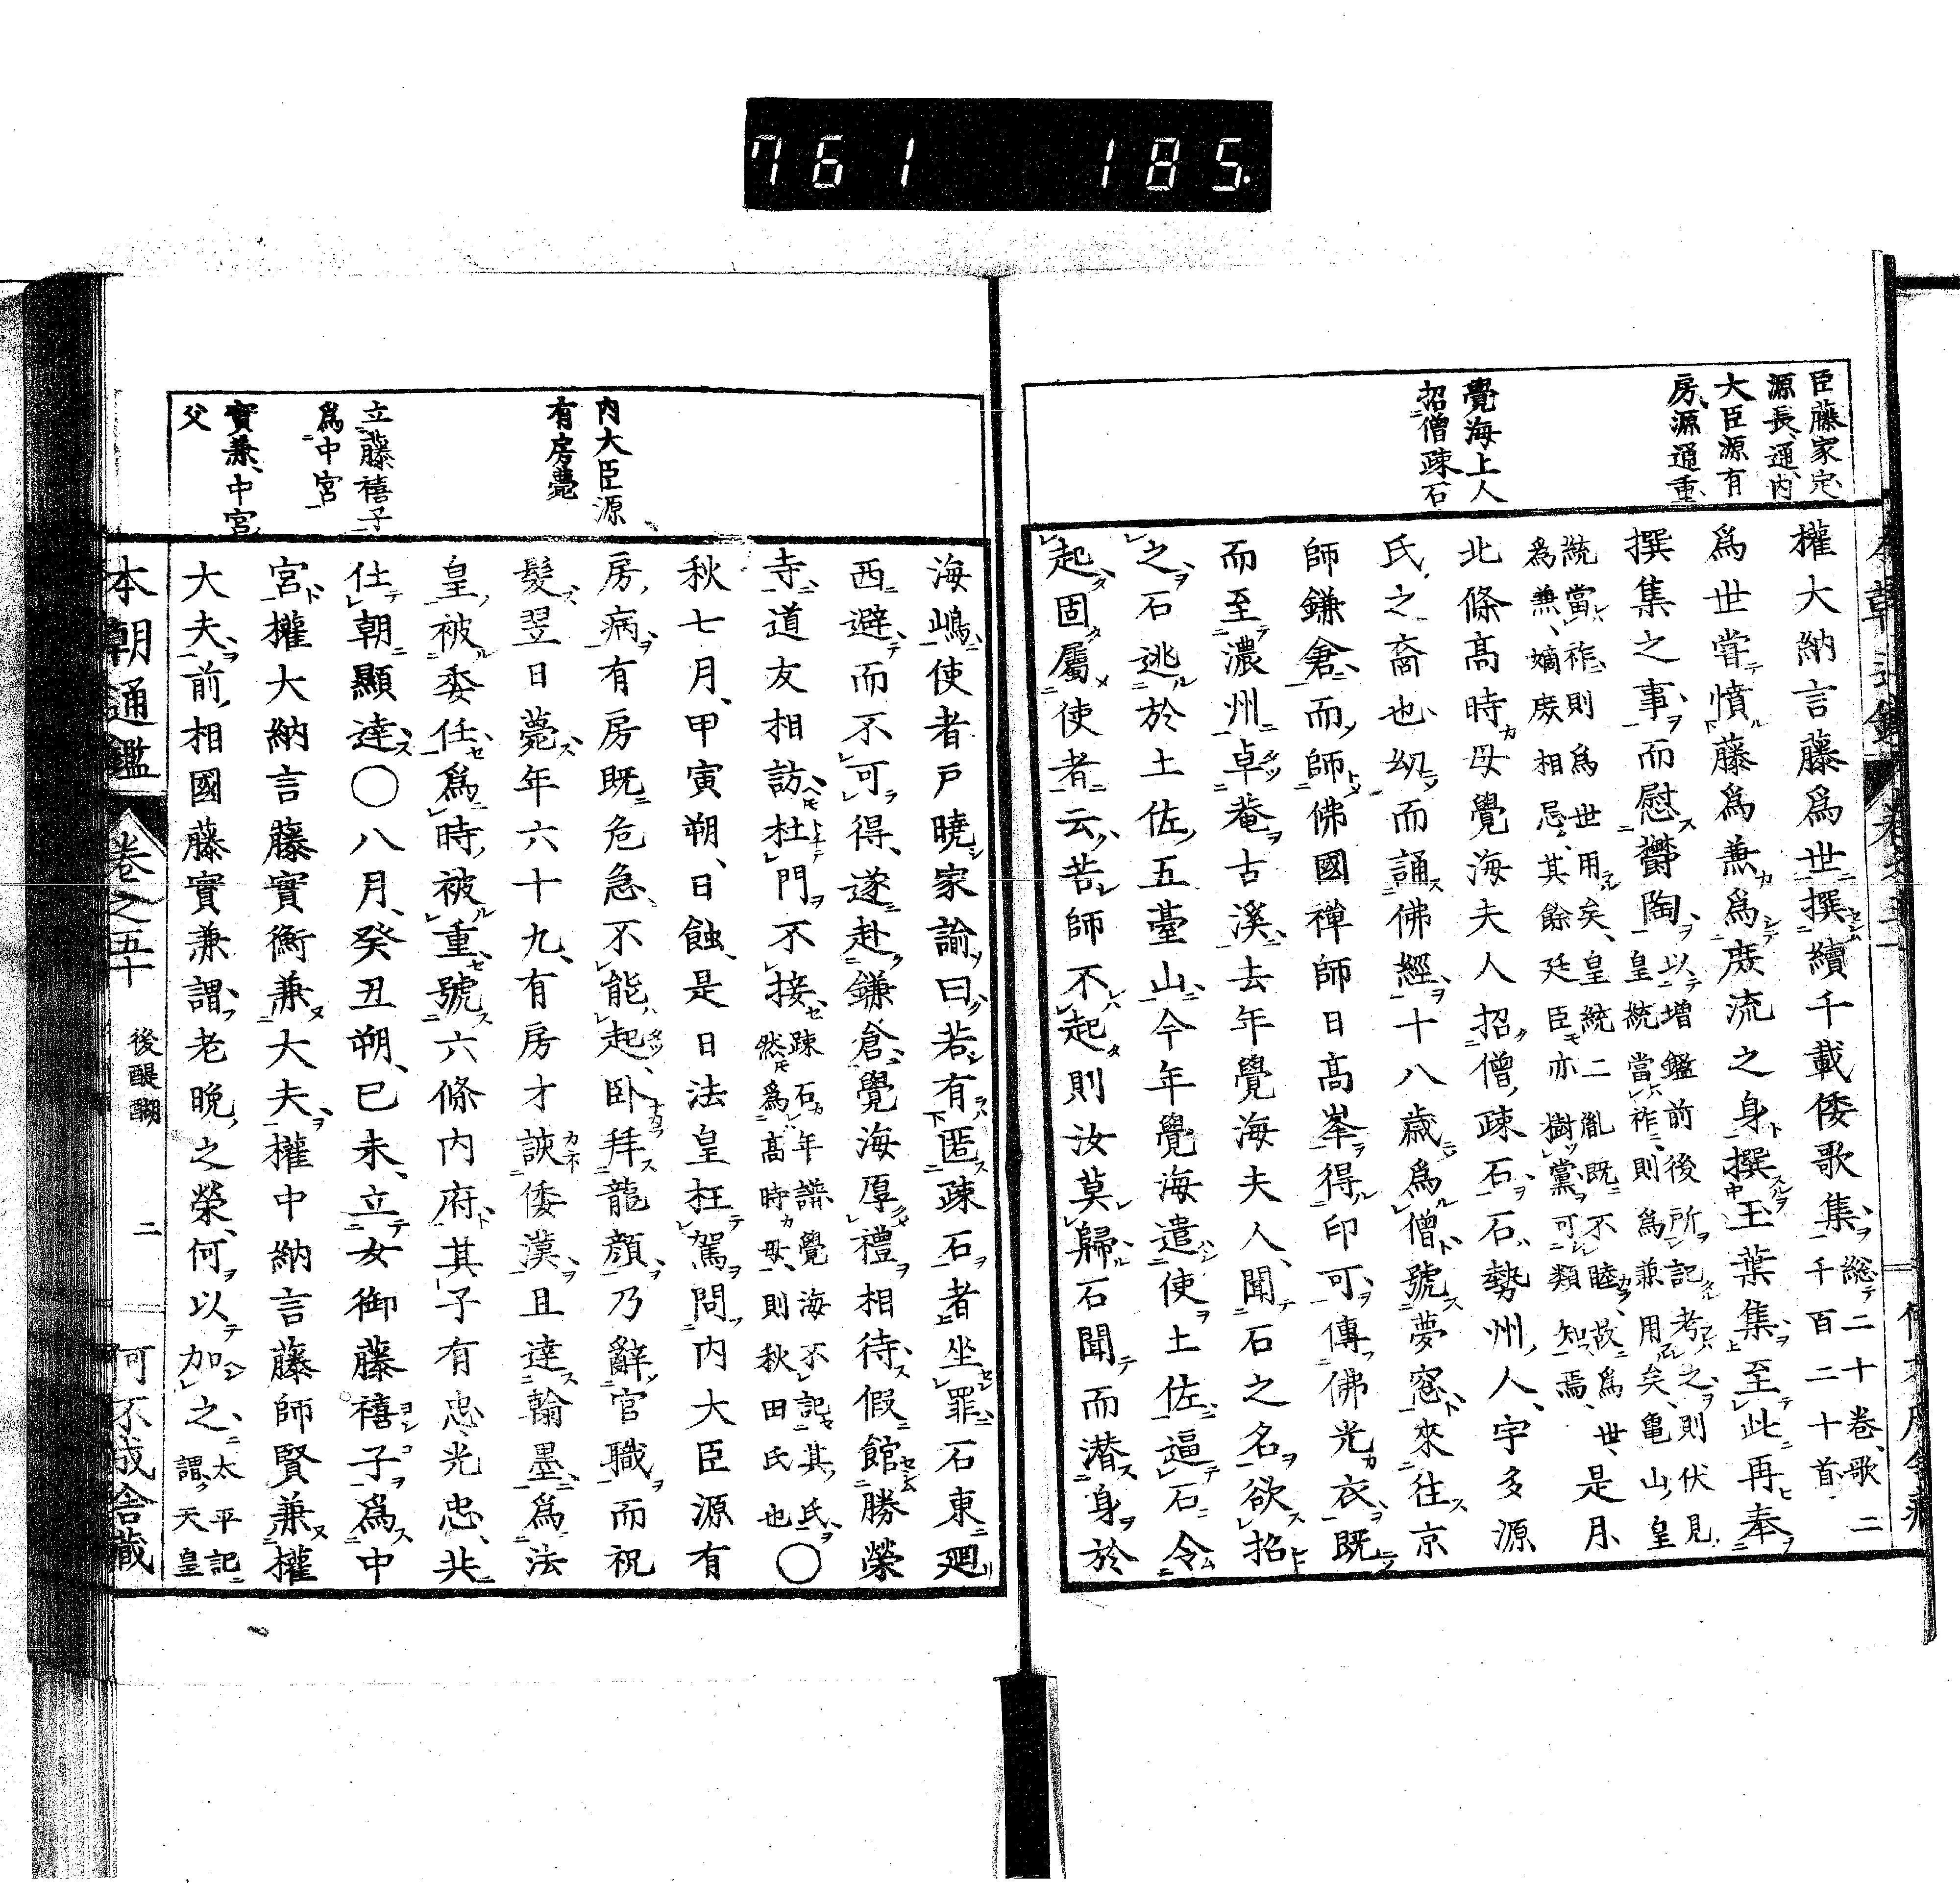 761 185.
臣藤家定、
源長通、内
大臣源有
房、源通重、
覺海上人
招僧疎石
權大納言藤爲世撰續千載倭歌集、総二十卷、歌二
千百二十首、
爲世嘗憤藤爲兼爲庶流之身撰玉葉集至此再奉
撰集之事而慰欝陶、以增鑑前後所記考之則伏見、
皇統當祚則爲兼用矣、亀山皇
統當祚、則爲世用矣、皇統二胤既不睦、故爲世、
爲兼、嫡庶相忌、其餘廷臣亦樹黨可類知焉、
是月
北條髙時母覺海夫人招僧疎石、石勢州人、宇多源
氏之裔也、幼而誦佛經、十八歳爲僧號夢窓來往京
師鎌倉、而師佛國禪師日髙峯得印可、傳佛光衣、既
而至濃州卓菴古溪、去年覺海夫人、聞石之名欲招
之、石逃於土佐五臺山、今年覺海遣使土佐逼石令
起固屬使者云、若師不起則汝莫歸石聞而潜身於
内大臣源
有房薨
立藤禧子
爲中宮
實兼、中宮
父
海嶋、使者戸曉家諭曰、若有匿疎石者坐罪石東廻
西避而不可得、遂赴鎌倉、覺海厚禮相待、假館勝榮
寺、道友相訪杜門不接、疎石年譜覺海不記其氏、
然爲髙時母、則秋田氏也
〇
秋七月、甲寅朔、日蝕、是日法皇枉駕問内大臣源有
房病有房既危急、不能起、卧拜龍顔、乃辭官職而祝
髮翌日薨年六十九、有房才諛倭漢、且達翰墨、爲法
皇被委任、爲時被重、號六條内府、其子有忠、光忠、共
仕朝顯達〇八月、癸丑朔、已未、立女御藤禧子爲中
宮、權大納言藤實衡兼大夫、權中納言藤師賢兼權
大夫、前相國藤實兼謂、老晩之榮、何以加之、太平記
謂天皇
本朝通鑑
卷之五十
後醍醐
二